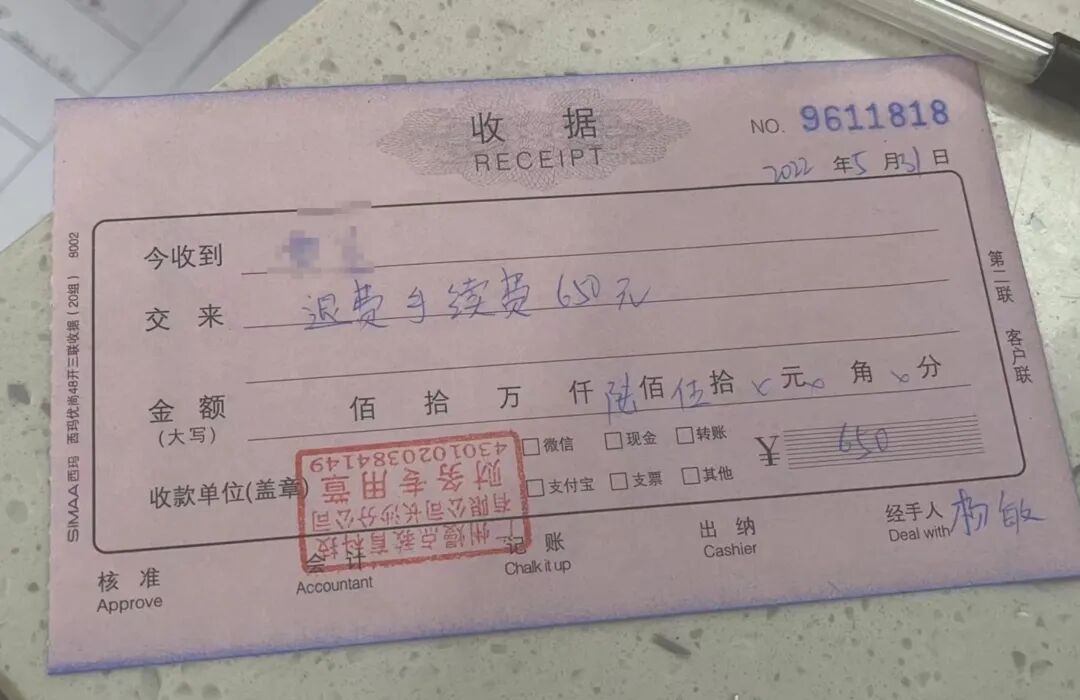 收 据
RECEIPT
NO. 9611818
2022 年 5 月 31 日
今收到
交 来 退费手续费 650元
金 额 佰 拾 万 仟 陆 佰 伍 拾 x 元 x 角 x 分
(大写)
微信 现金 转账 ¥ 650
支付宝 支票 其他
收款单位(盖章)
州 点教育科技
有限公司长沙分公司
财务专用章
4301020384149
核 准
Approve
会 计
Accountant
记 账
Chalk it up
出 纳
Cashier
经手人 杨敏
Deal with
第二联 客户联
SIMAA西玛 西玛优尚48开三联收据(20组) 8002